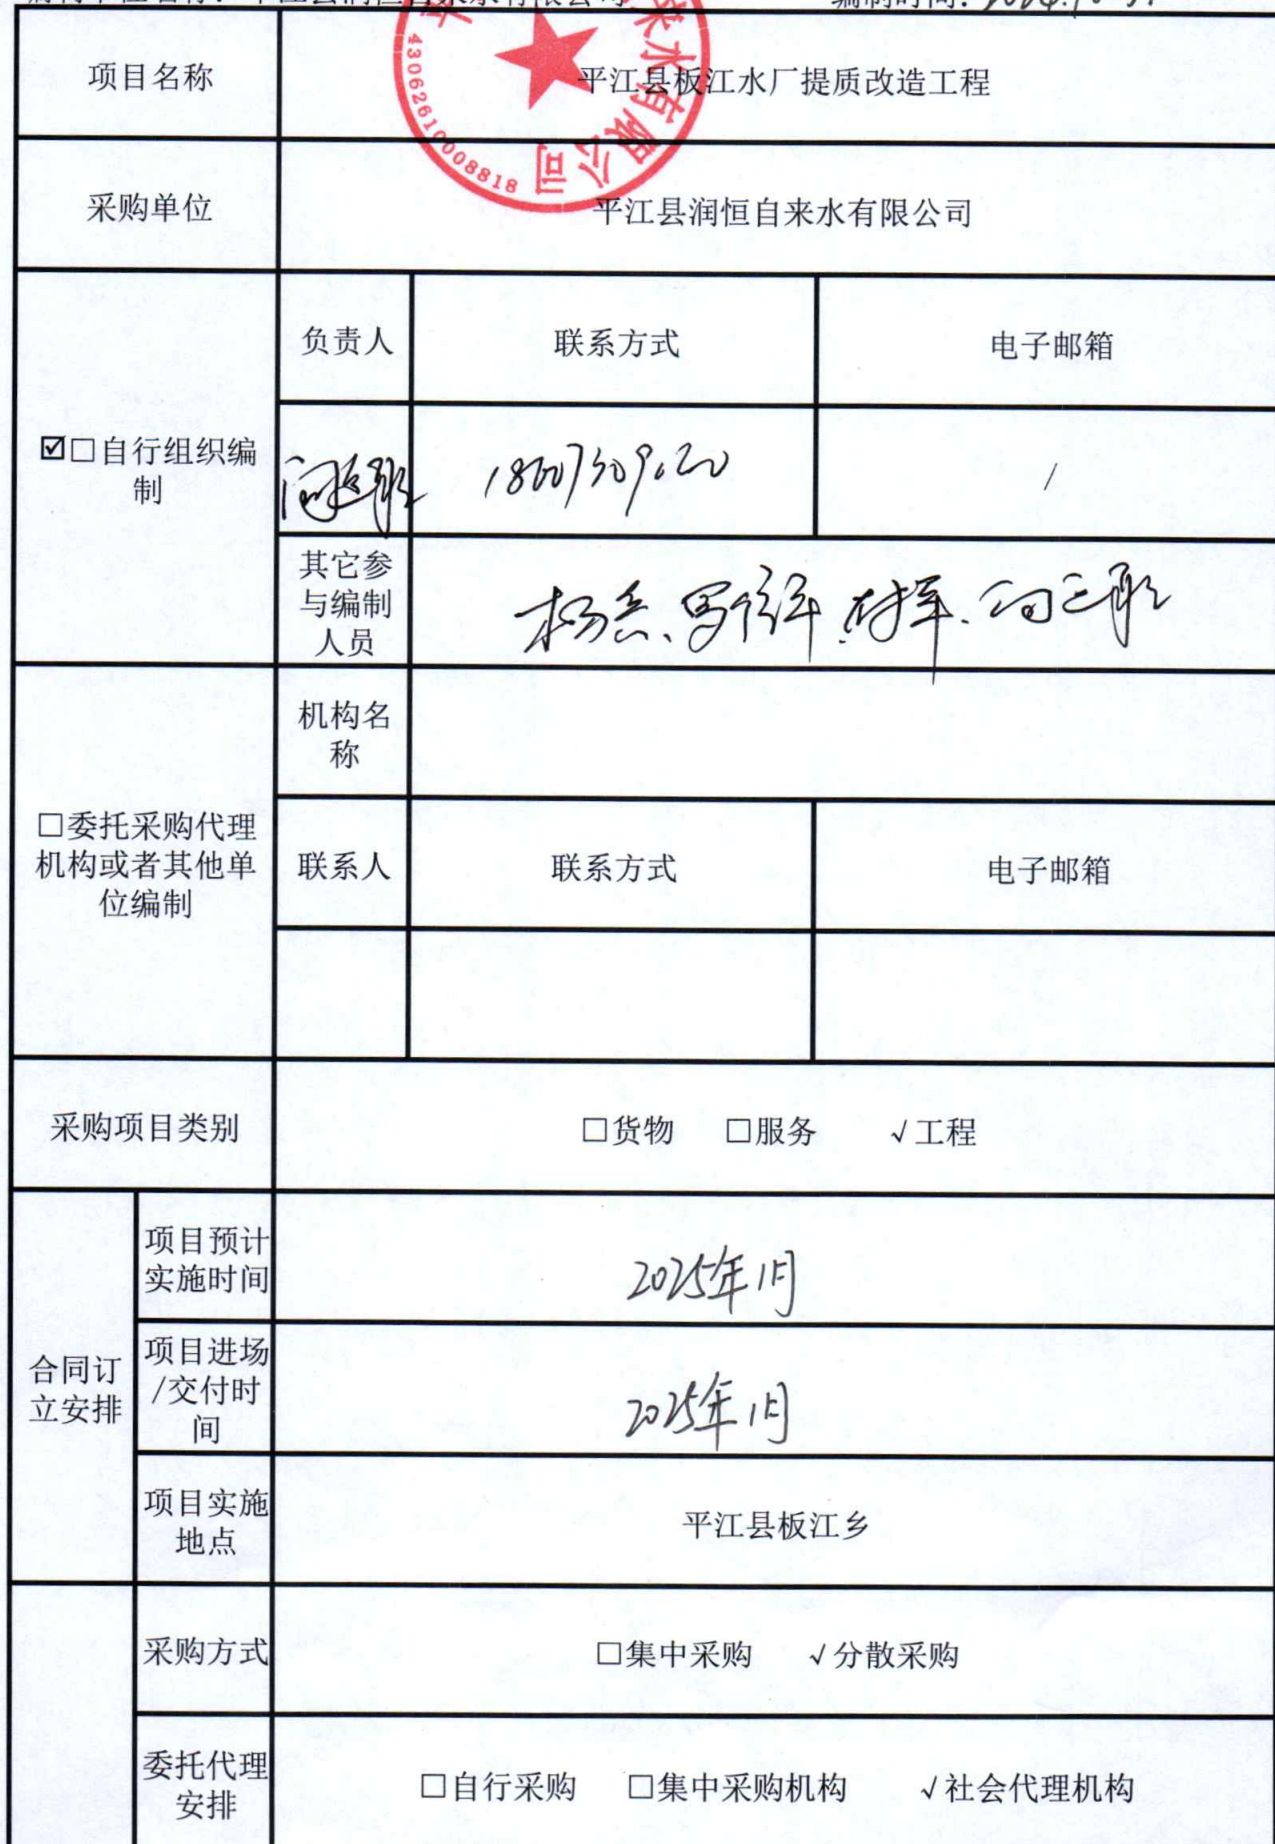 平江县润恒自来水有限公司
编制时间: 2024.10.31
来水有限公司
43062610008818
项目名称
平江县板江水厂提质改造工程
采购单位
平江县润恒自来水有限公司
☑□自行组织编
制
负责人
联系方式
电子邮箱
/
其它参
与编制
人员
□委托采购代理
机构或者其他单
位编制
机构名
称
联系人
联系方式
电子邮箱
采购项目类别
□货物 □服务 √工程
合同订
立安排
项目预计
实施时间
2025年1月
项目进场
/交付时
间
2025年1月
项目实施
地点
平江县板江乡
采购方式
□集中采购 √分散采购
委托代理
安排
□自行采购 □集中采购机构 √社会代理机构